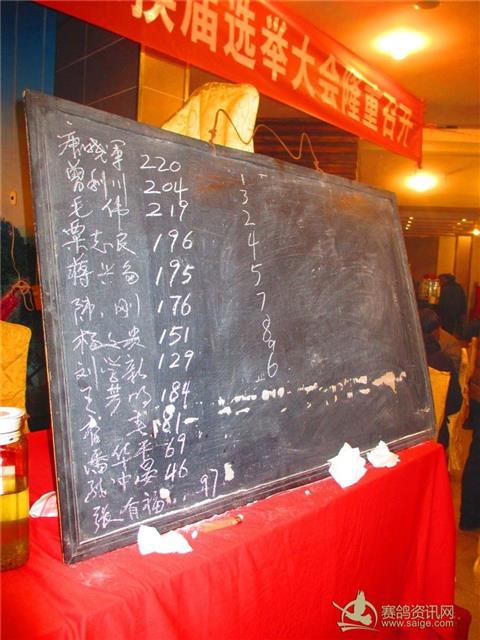 换届选举大会隆重召开
唐晓军 220 1
曾利川 204 3
毛伟 219 2
粟志良 196 4
蒋兴多 195 5
陈刚 176 7
杨文贵 151 8
刘学新 129 9
王芳明 184 6
81
华平 69
冲安 46
张有福 97
赛鸽资讯网
www.saige.com